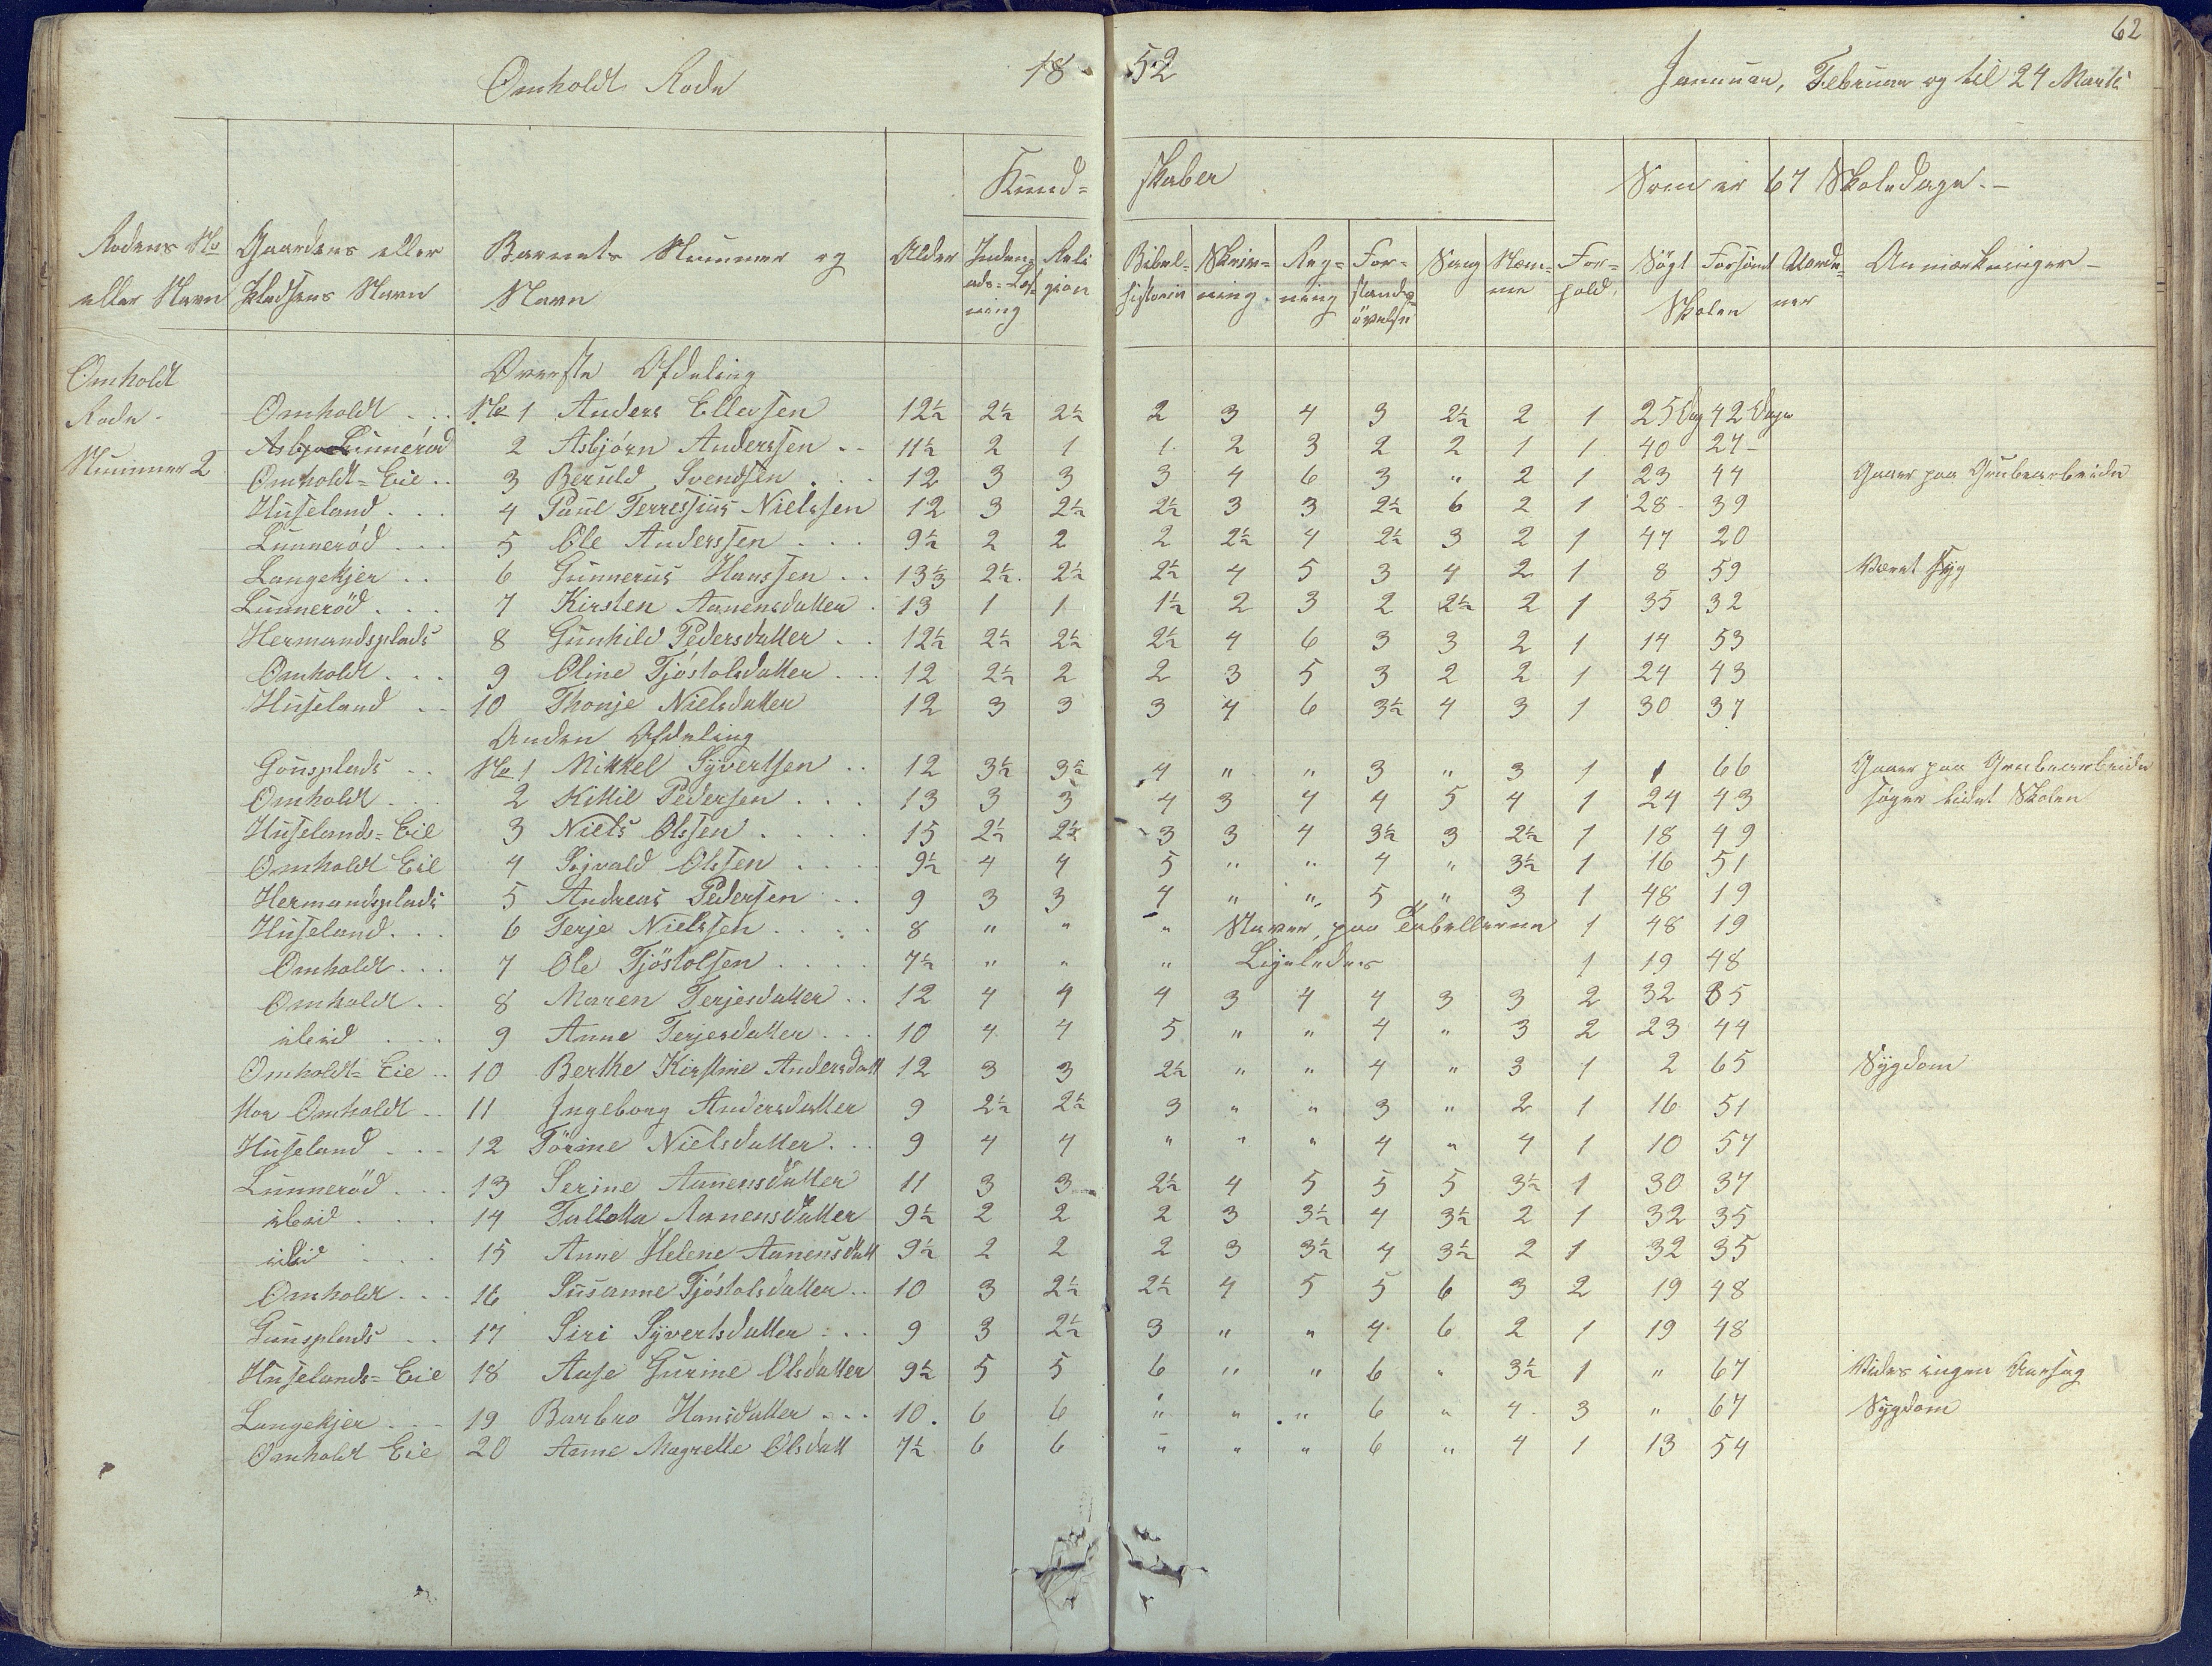 62
Omholdt Rode 18 52 Januuar, Februar og til 24 Marts
Kund= skaber Som er 67 Skoledage.-
Rodens No eller Navn Gaardens eller Pladsens Navn Barnets Nummer og Navn Alder Inden=ads=Læsning Religion Bibel=historie Skriv=ning Reg=ning For=stands=øvelse Sang Næm=me For=hold. Søgt Forsömt Skolen Uorde=ner Anmærkninger -
Omholdt Øverste Afdeling
Rode - Omholdt . . . No 1 Anders Ellefsen 12½ 2½ 2½ 2 3 4 3 2½ 2 1 25 Dag 42 Dage
Lunnerød 2 Asbjörn Anderssen . . 11½ 2 1 1 2 3 2 2 1 1 40 27 -
Nummer 2 Omholdt=Eie . . 3 Beruld Svendsen . . . 12 3 3 3 4 6 3 " 2 1 23 44 Gaaer paa Grubearbeide
Huseland . . . 4 Paul Terressius Nielssen 12 3 2½ 2½ 3 3 2½ 6 2 1 28 - 39
Lunnerød . . . 5 Ole Anderssen . . . 9½ 2 2 2 2½ 4 2½ 3 2 1 47 20
Langekjer . . 6 Gunnerus Hanssen . . 13⅓ 2½ 2½ 2½ 4 5 3 4 2 1 8 59 Været syg
Lunneröd . . . 7 Kirsten Aanensdatter . 13 1 1 1½ 2 3 2 2½ 2 1 35 32
Hermandsplads 8 Gunhild Pedersdatter . . 12½ 2½ 2½ 2½ 4 6 3 3 2 1 14 53
Omholdt . . . 9 Oline Tjöstolsdatter . . . 12 2½ 2 2 3 5 3 2 2 1 24 43
Huseland . . 10 Thonje Nielsdatter 12 3 3 3 4 6 3½ 4 3 1 30 37
Anden Afdeling
Gausplads . . No 1 Mikkel Syvertsen . . 12 3½ 3½ 4 " " 3 " 3 1 1 66 Gaaer paa Grubearbeide
Omholdt . . . 2 Kittil Pedersen . . . 13 3 3 4 3 4 4 5 4 1 24 43 söger lidet Skolen
Huselands=Eie 3 Niels Olssen . . . . 15 2½ 2½ 3 3 4 3½ 3 2½ 1 18 49
Omholdt Eie 4 Sigvald Olssen . . . . 9½ 4 4 5 " " 4 " 3½ 1 16 51
Hermandsplads 5 Andreas Pedersen . . 9 3 3 4 " " 5 " 3 1 48 19
Huseland . . . 6 Terje Nielssen . . . . 8 " " " Staver paa Tabellerne 1 48 19
Omholdt . . . 7 Ole Tjöstolsen . . . . 7½ " " " Ligeledes 1 19 48
Omholdt . . 8 Maren Terjesdatter . . 12 4 4 4 3 4 4 3 3 2 32 35
ibid . . . 9 Anne Terjesdatter . . . 10 4 4 5 " " 4 " 3 2 23 44
Omholdt=Eie . . 10 Berthe Kirstine Andersdatt 12 3 3 2½ " " 4 " 3 1 2 65 Sygdom
Omholdt . . 11 Ingeborg Andersdatter 9 2½ 2½ 3 " " 3 " 2 1 16 51
Huseland . . . 12 Törine Nielsdatter . . . 9 4 4 " " " 4 " 4 1 10 57
Lunneröd . . . 13 Serine Aanensdatter 11 3 3 2½ 4 5 5 5 3½ 1 30 37
ibid . . . 14 Tallotta Aanensdatter 9½ 2 2 2 3 3½ 4 3½ 2 1 32 35
ibid . . . 15 Anne Helene Aanensdatt 9½ 2 2 2 3 3½ 4 3½ 2 1 32 35
Omholdt . . . 16 Susanne Tjöstolsdatter . . 10 3 2½ 2½ 4 5 5 6 3 2 19 48
Gausplads . . 17 Siri Syvertsdatter . . . 9 3 2½ 3 " " 4 6 2 1 19 48
Huselands=Eie 18 Aase Gurine Olsdatter 9½ 5 5 6 " " 6 " 3½ 1 " 67 Vides ingen Aarsag
Langekjer . . . 19 Barbro Hansdatter . . . 10 . 6 6 " " " 6 " 4 3 " 67 Sygdom
Omholdt Eie 20 Anne Magrethe Olsdatt 7½ 6 6 " " " 6 " 4 1 13 54